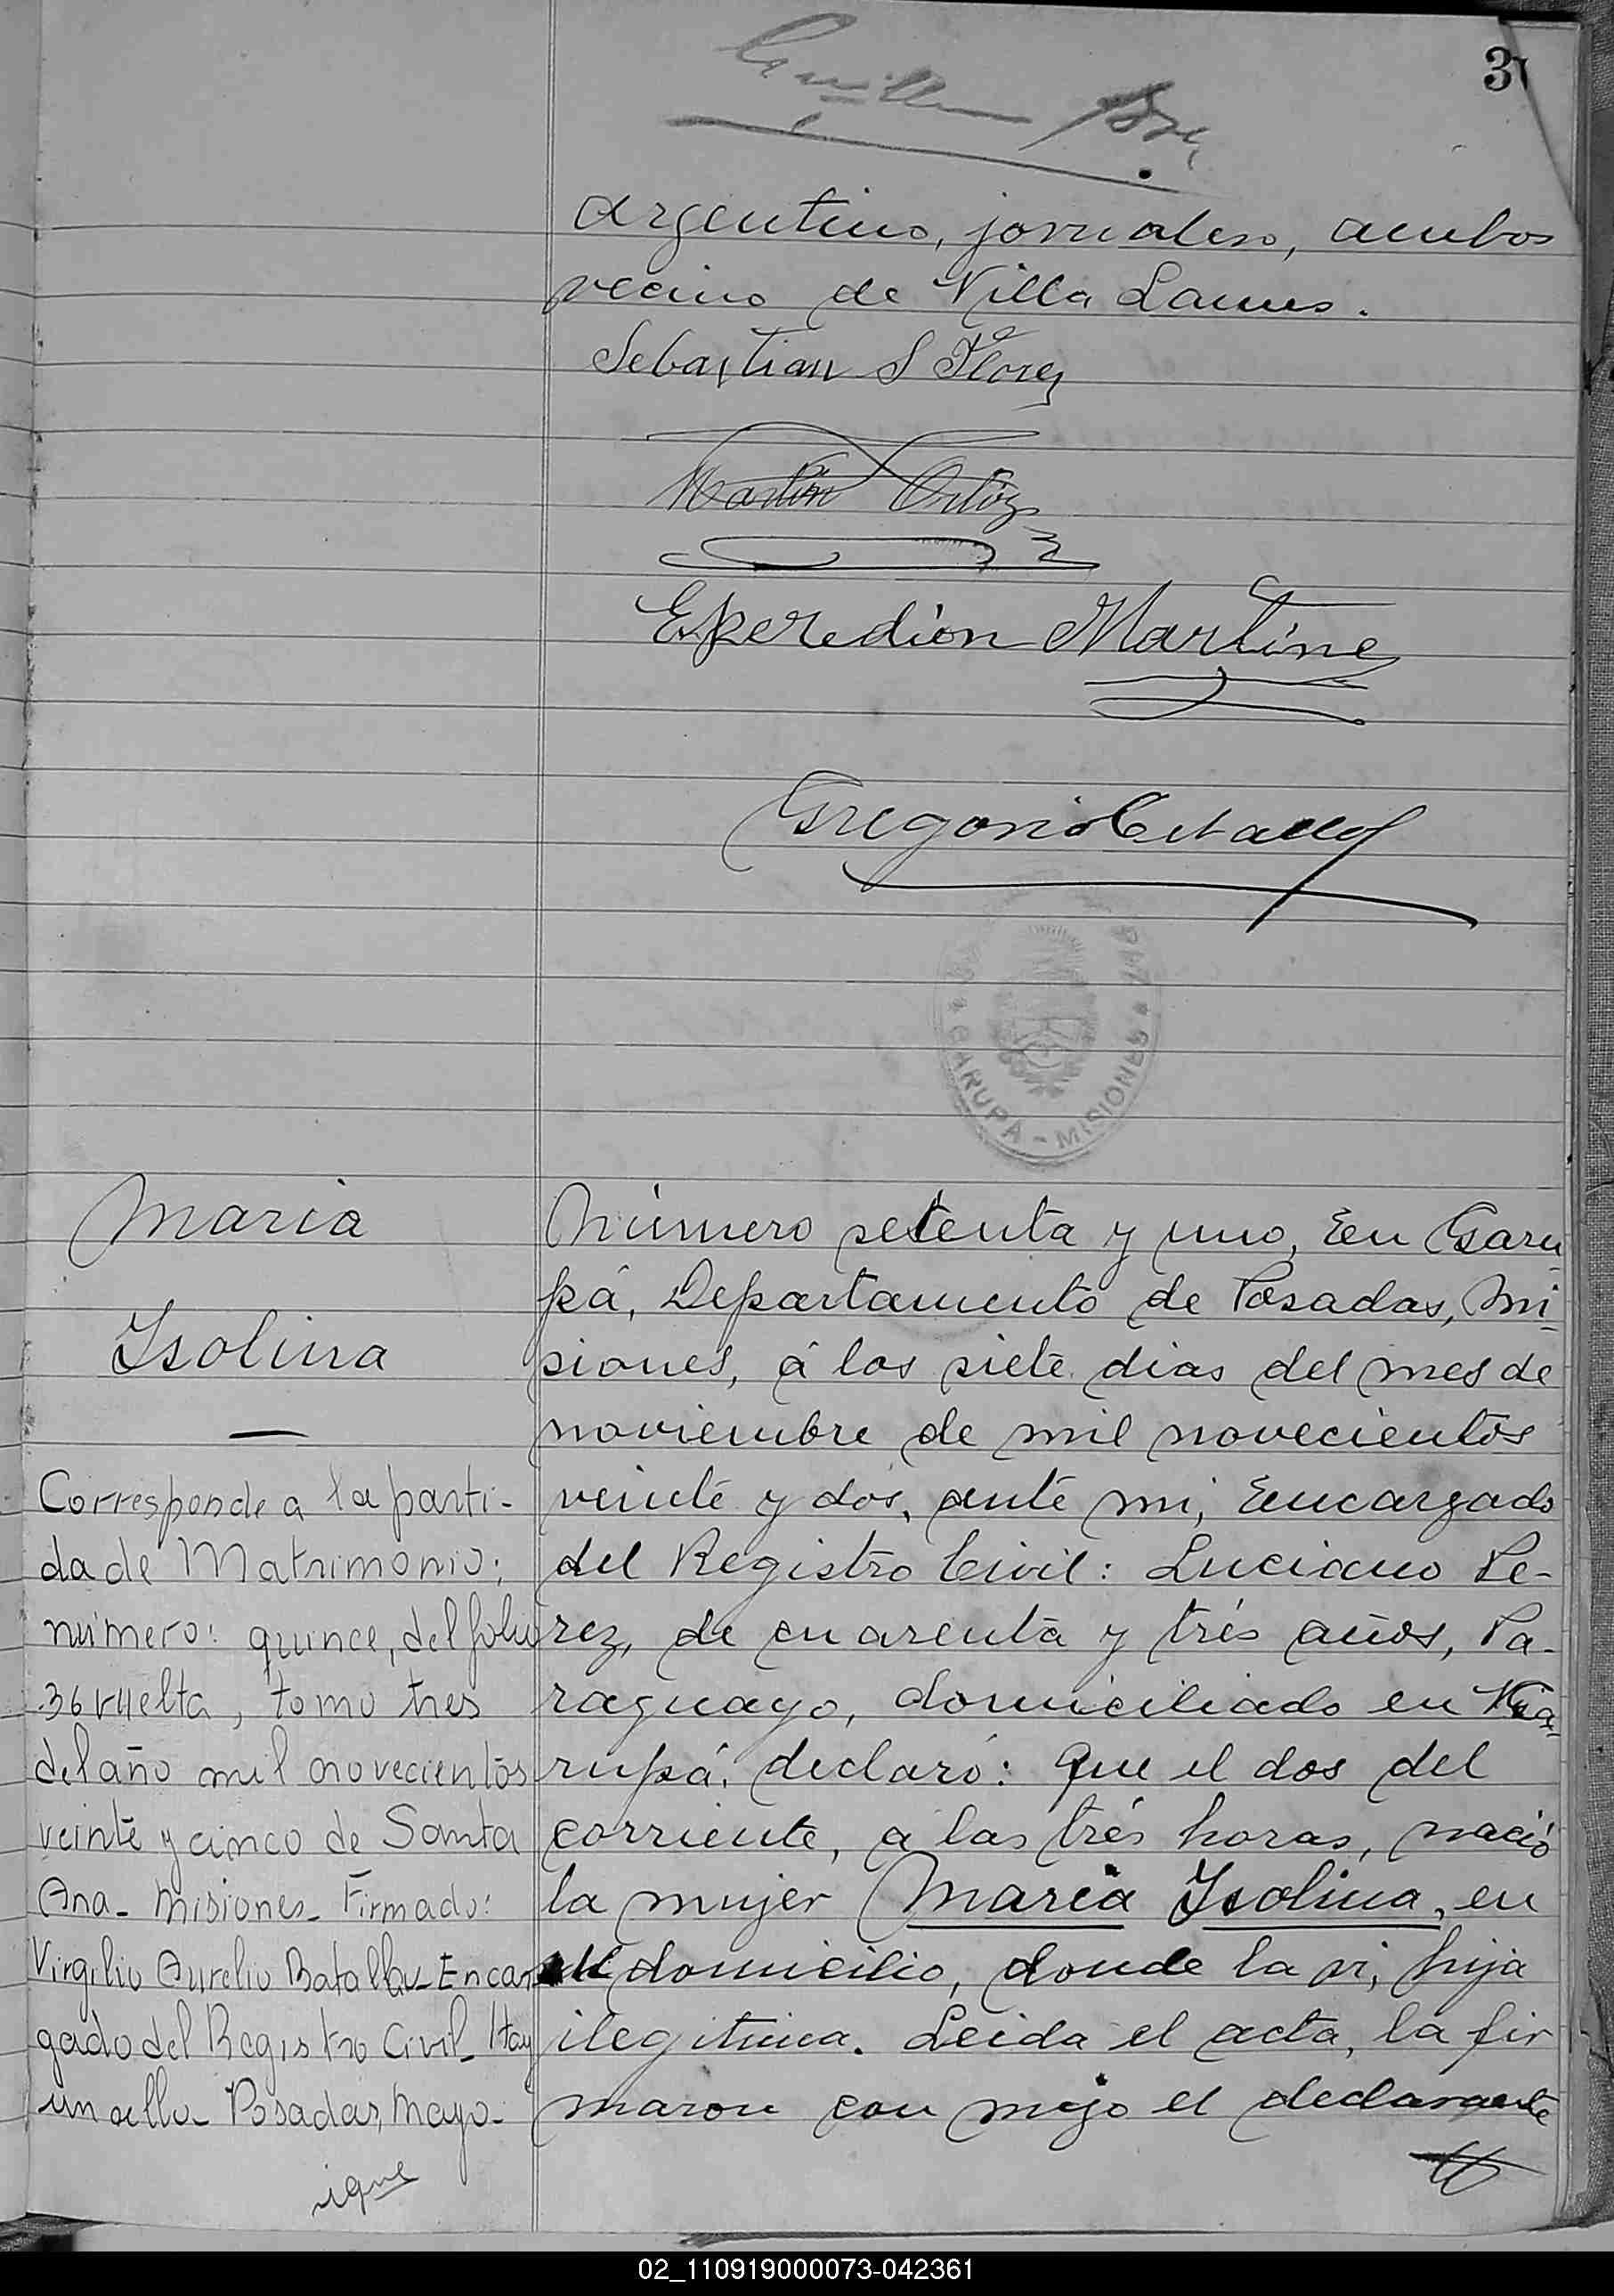 37
argentino, jornalero, ambos
vecino de Villa Lanus.
Sebastian S Florez
Martin Ortiz
Esperedion Martine
Gregorio
GARUPÁ - MISIONES
Maria
Isolina
Corresponde a la parti-
da de Matrimonio:
número: quince, del folio
36 vuelta, tomo tres
del año mil novecientos
veinte y cinco de Santa
Ana - Misiones - Firmado:
Virgilio Aurelio Batalla - Encar
gado del Registro Civil - Hay
un sello - Posadas, Mayo -
igue
Número setenta y uno, En Garu
pá, Departamento de Posadas, Mi-
siones, á los siete dias del mes de
noviembre de mil novecientos
veinte y dos, ante mi, Encargado
del Registro Civil: Luciano Pe-
rez, de cuarenta y trés años, Pa-
raguayo, domiciliado en
rupá, declaró: Que el dos del
corriente, a las trés horas, nació
la mujer Maria Isolina, en
su domicilio, donde la vi, hija
ilegitima. Leida el acta, la fir
maron con migo el declarante
02_110919000073-042361